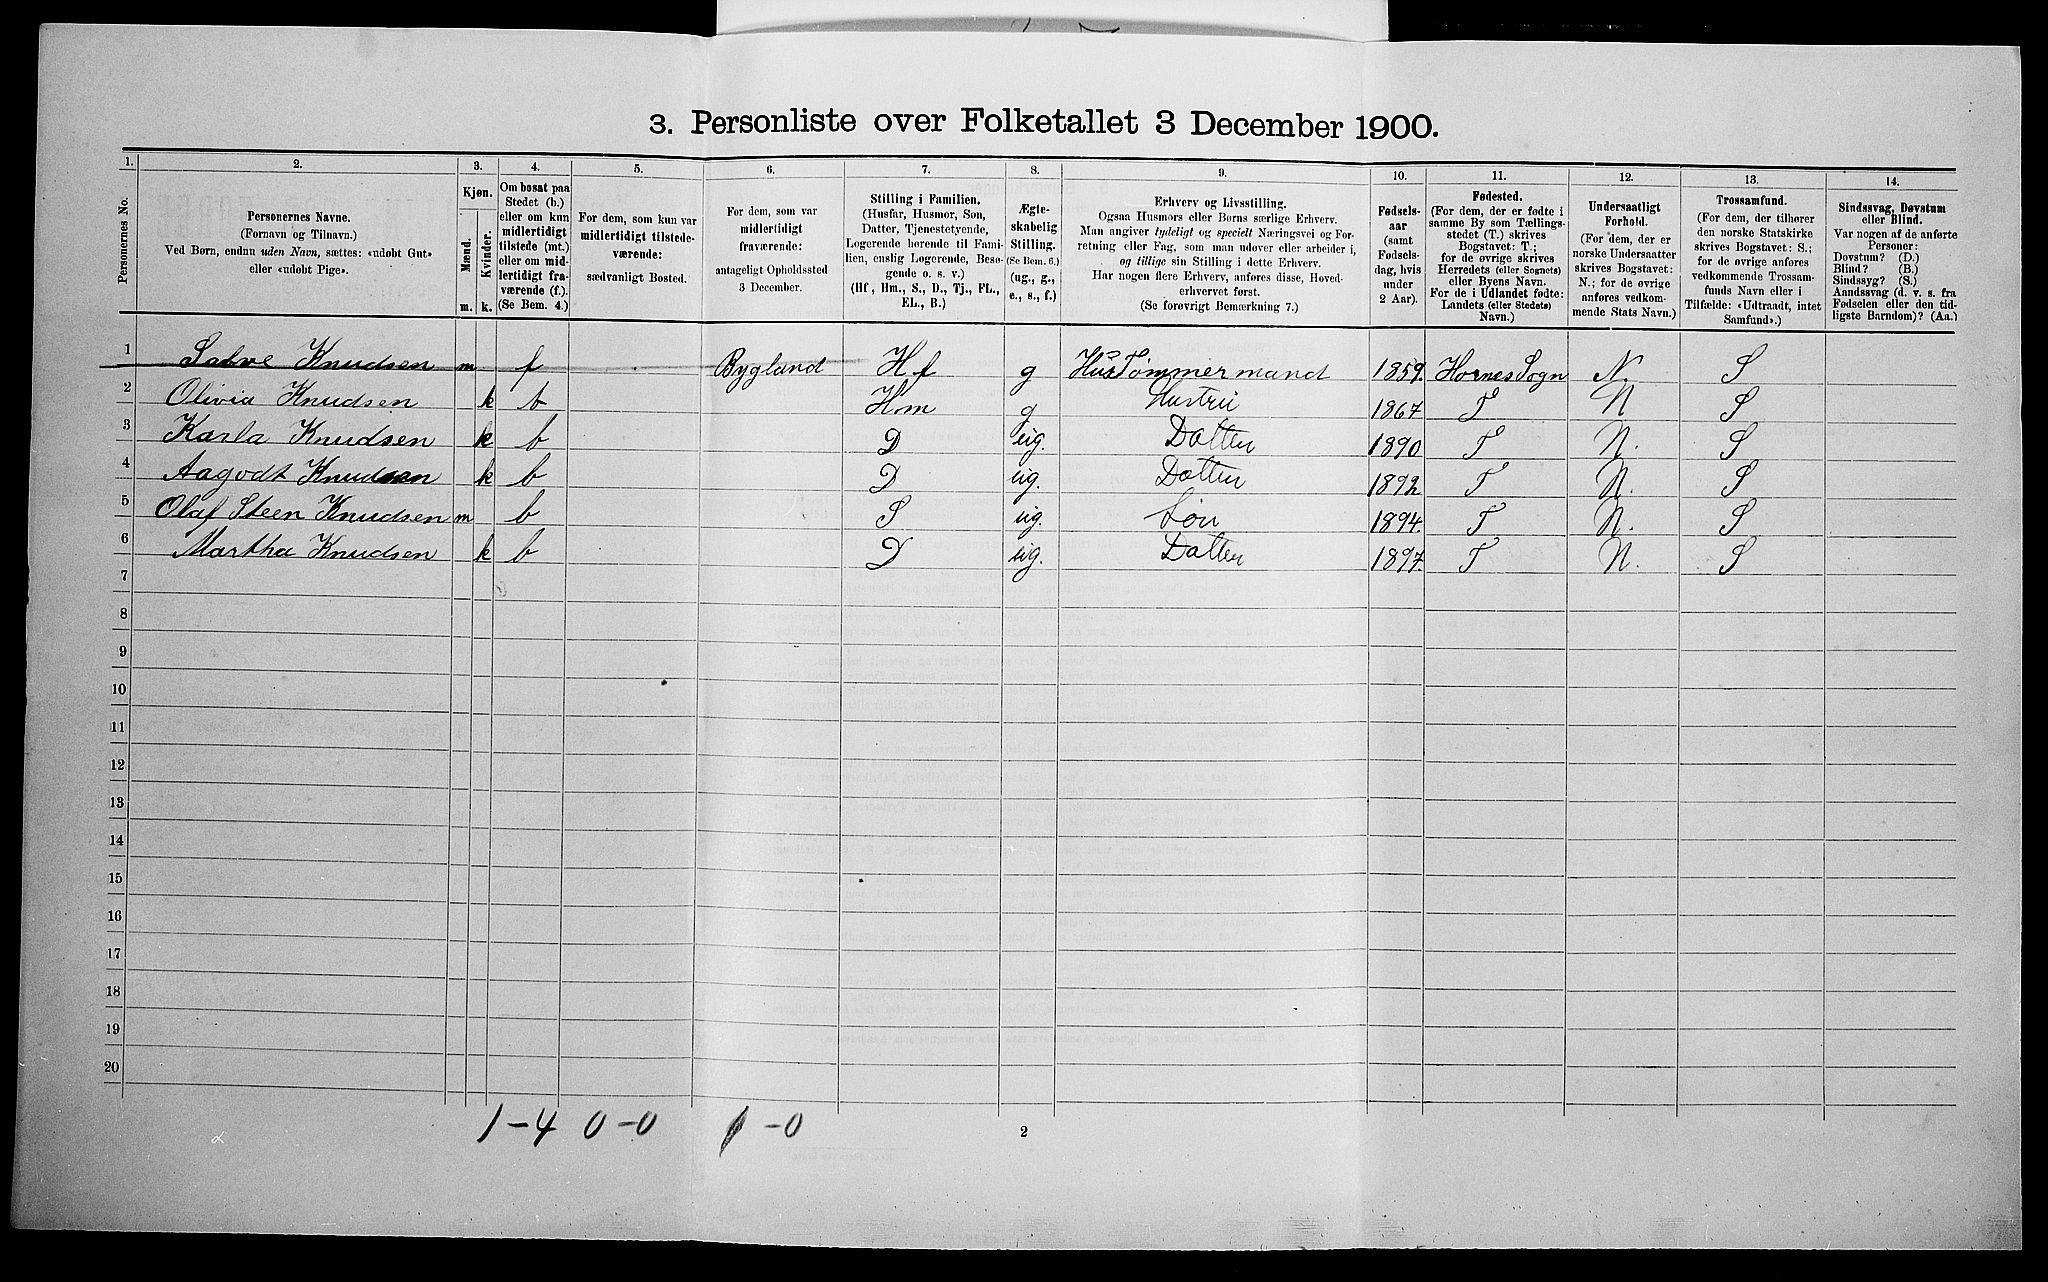 3. Personliste over Folketallet 3 December 1900.
1. 2. 3. 4. 5. 6. 7. 8. 9. 10. 11. 12. 13. 14.
Personernes No.
Personernes Navne.
(Fornavn og Tilnavn.)
Ved Børn, endnu uden Navn, sættes: «udøbt Gut»
eller «udøbt Pige».
Kjøn.
Mænd.
Kvinder.
m. k.
Om bosat paa
Stedet (b.)
eller om kun
midlertidigt
tilstede (mt.)
eller om mid-
lertidigt fra-
værende (f.).
(Se Bem. 4.)
For dem, som kun var
midlertidigt tilstede-
værende:
sædvanligt Bosted.
For dem, som var
midlertidigt
fraværende:
antageligt Opholdssted
3 December.
Stilling i Familien.
(Husfar, Husmor, Søn,
Datter, Tjenestetyende,
Logerende hørende til Fami-
lien, enslig Logerende, Besø-
gende o. s. v.)
(Hf, Hm., S., D., Tj., FL.,
EL., B.)
Ægte-
skabelig
Stilling.
(Se Bem. 6.)
(ug., g.,
e., s., f.)
Erhverv og Livsstilling.
Ogsaa Husmors eller Børns særlige Erhverv.
Man angiver tydeligt og specielt Næringsvei og For-
retning eller Fag, som man udøver eller arbeider i,
og tillige sin Stilling i dette Erhverv.
Har nogen flere Erhverv, anføres disse, Hoved-
erhvervet først.
(Se forøvrigt Bemærkning 7.)
Fødsels-
aar
(samt
Fødsels-
dag, hvis
under
2 Aar).
Fødested.
(For dem, der er fødte i
samme By som Tællings-
stedet (T.) skrives
Bogstavet: T.;
for de øvrige skrives
Herredets (eller Sognets)
eller Byens Navn.
For de i Udlandet fødte:
Landets (eller Stedets)
Navn.)
Undersaatligt
Forhold.
(For dem, der er
norske Undersaatter
skrives Bogstavet:
N.; for de øvrige
anføres vedkom-
mende Stats Navn.)
Trossamfund.
(For dem, der tilhører
den norske Statskirke
skrives Bogstavet: S.;
for de øvrige anføres
vedkommende Trossam-
funds Navn eller i
Tilfælde: «Udtraadt, intet
Samfund».)
Sindssvag, Døvstum
eller Blind.
Var nogen af de anførte
Personer:
Døvstum? (D.)
Blind? (B.)
Sindssyg? (S.)
Aandssvag (d. v. s. fra
Fødselen eller den tid-
ligste Barndom)? (Aa.)
1 Salve Knudsen m f Bygland Hf g Hus Tømmermand 1859. Hornes Sogn N. S
2 Olivia Knudsen k b Hm g Hustru 1867 T N S
3 Karla Knudsen k b D ug. Datter 1890 T N. S
4 Aagodt Knudsen k b D ug. Datter 1892 T N. S
5 Olaf Steen Knudsen m b S ug. Søn 1894. T N. S
6 Martha Knudsen k b D ug. Datter 1897. T N. S
7
8
9
10
11
12
13
14
15
16
17
18
19
20
1-4 0-0 1-0
2